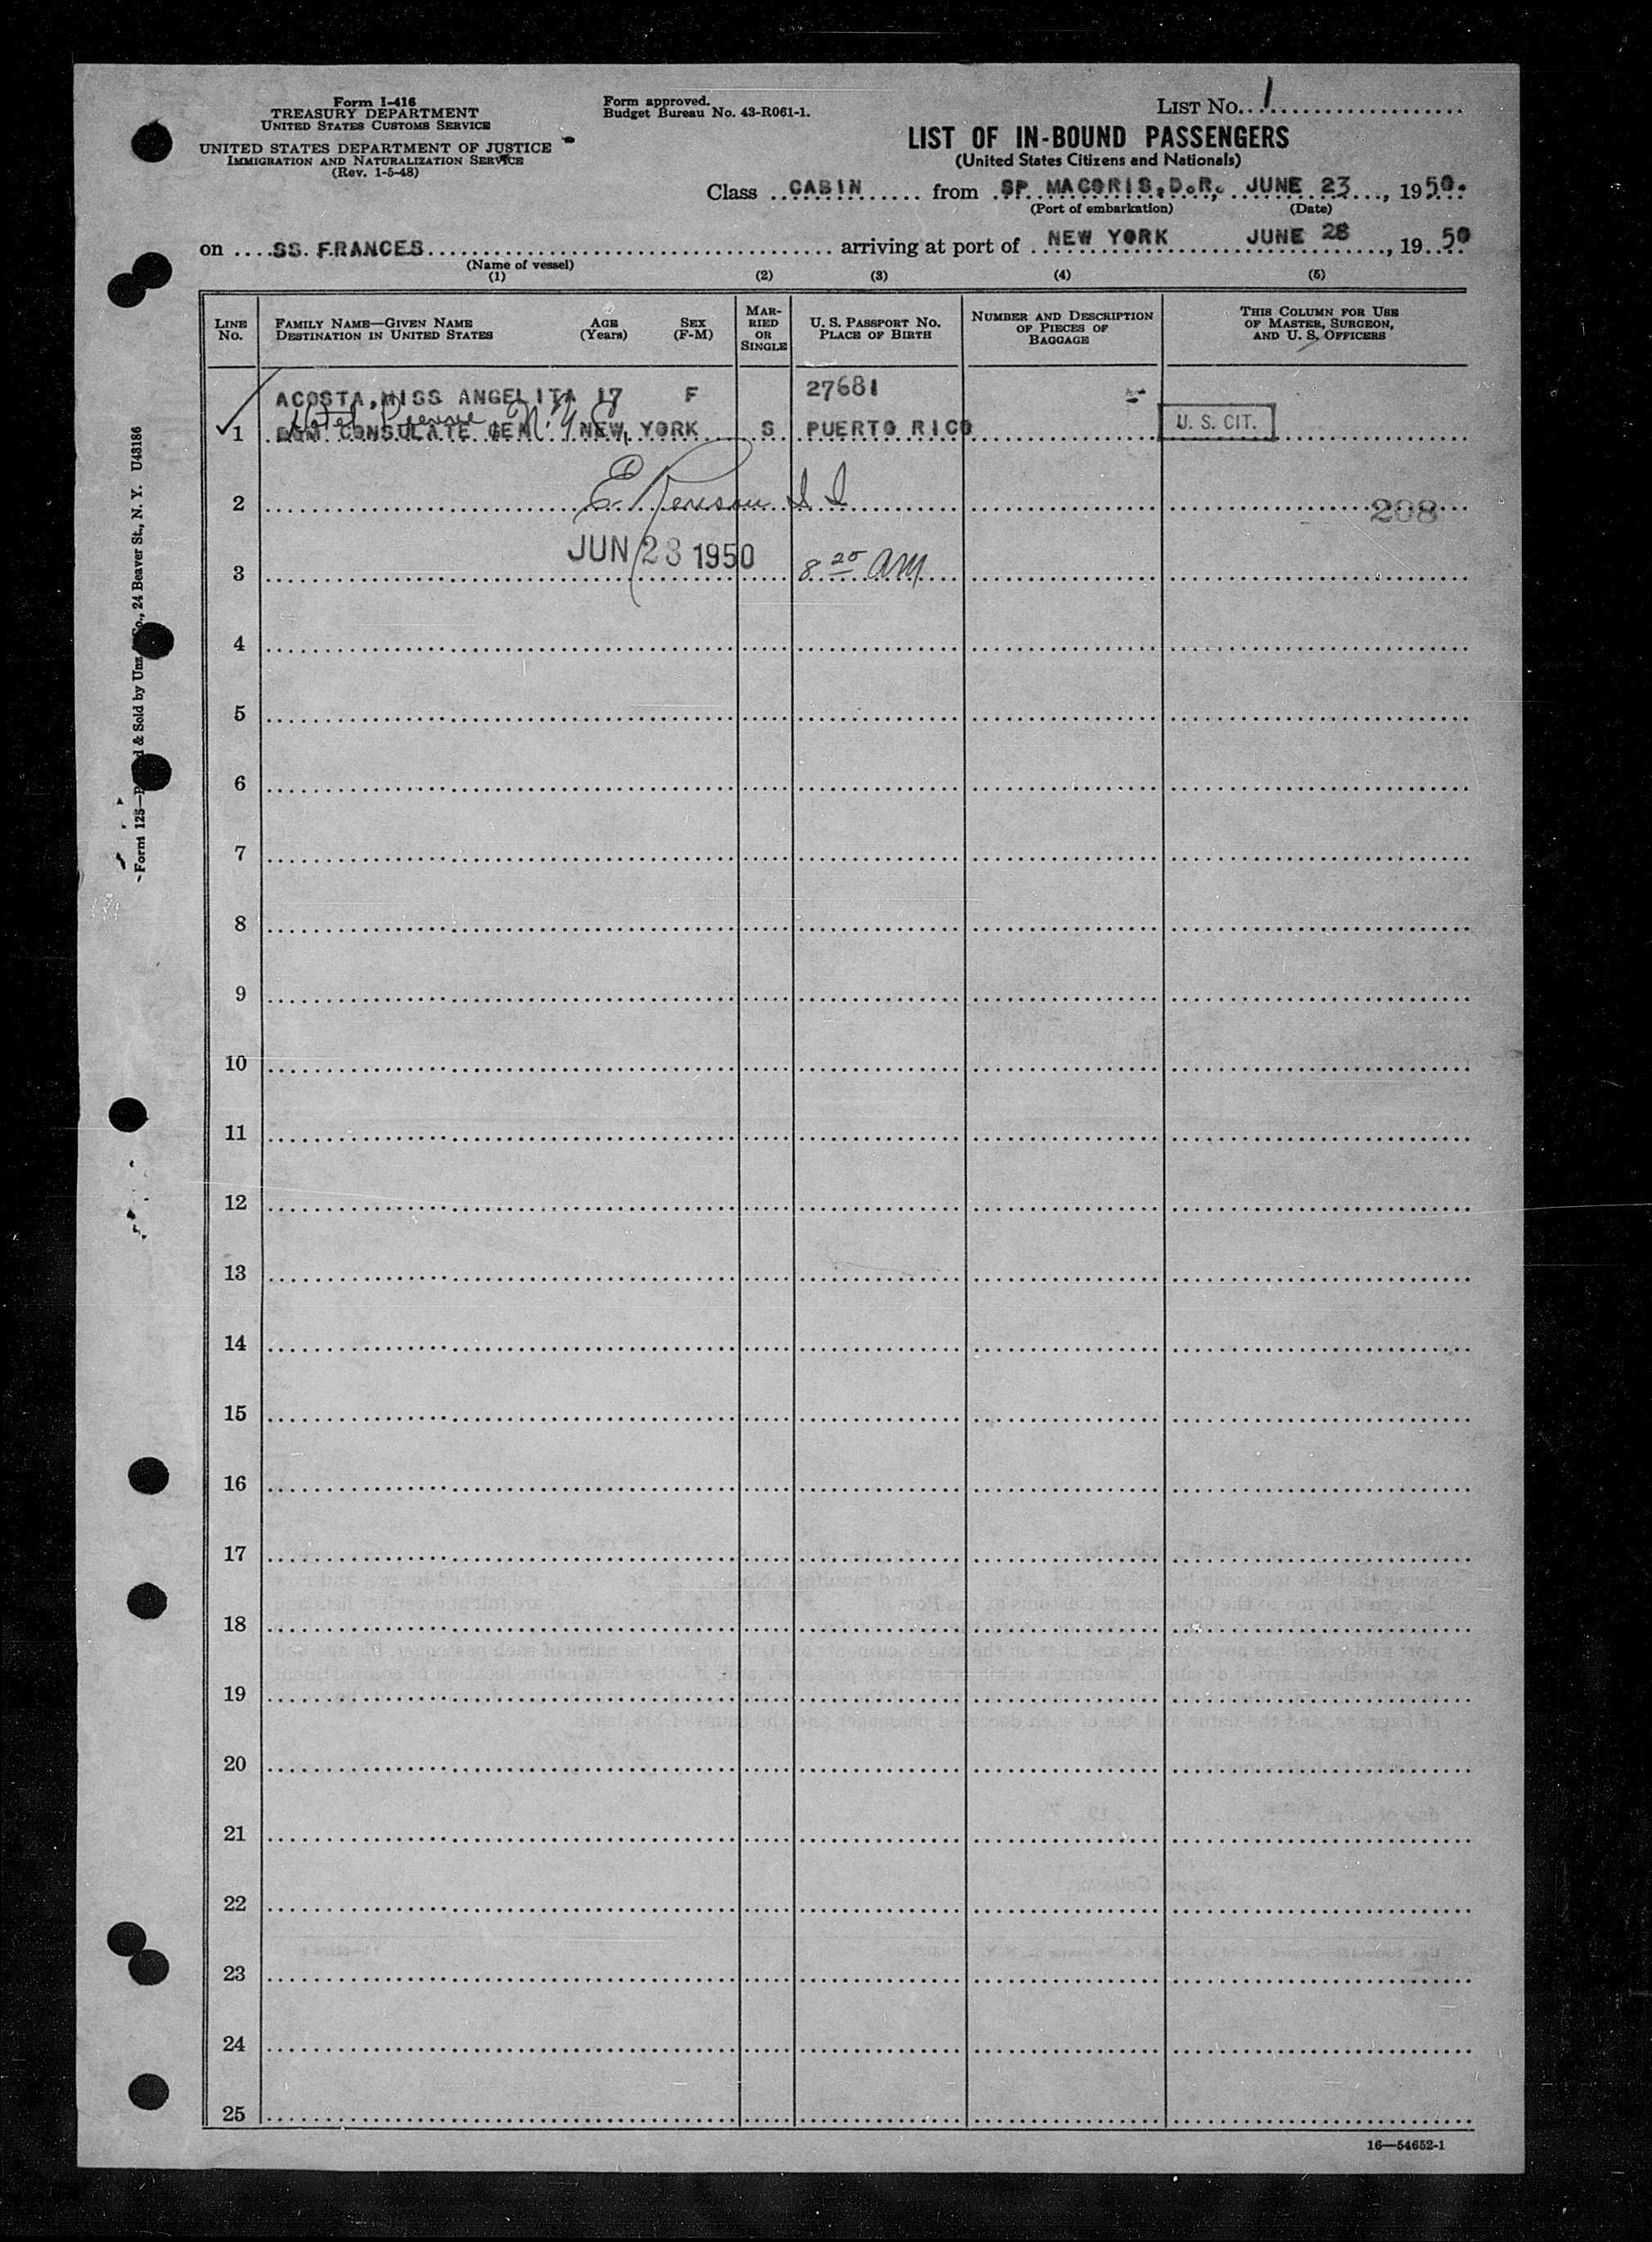 Form I-416
TREASURY DEPARTMENT
UNITED STATES CUSTOMS SERVICE
UNITED STATES DEPARTMENT OF JUSTICE
IMMIGRATION AND NATURALIZATION SERVICE
(Rev. 1-5-48)
Form approved.
Budget Bureau No. 43-R061-1.
LIST No. 1
LIST OF IN-BOUND PASSENGERS
(United States Citizens and Nationals)
Class CABIN from SP. MACORIS, D.R. JUNE 23, 1950.
(Port of embarkation) (Date)
on SS. FRANCES arriving at port of NEW YORK JUNE 28, 1950
(Name of vessel)
(1) (2) (3) (4) (5)
LINE No. FAMILY NAME—GIVEN NAME DESTINATION IN UNITED STATES AGE (Years) SEX (F-M) MARRIED OR SINGLE U. S. PASSPORT NO. PLACE OF BIRTH NUMBER AND DESCRIPTION OF PIECES OF BAGGAGE THIS COLUMN FOR USE OF MASTER, SURGEON, AND U. S. OFFICERS
ACOSTA, MISS ANGELITA 17 F 27681
Hotel Pierre N.Y.C.
1 DOM CONSULATE GEN. NEW YORK S PUERTO RICO U. S. CIT.
2 208
JUN 28 1950 8 20 AM
3
4
5
6
7
8
9
10
11
12
13
14
15
16
17
18
19
20
21
22
23
24
25
16—54652-1
24 Beaver St., N. Y. U43186